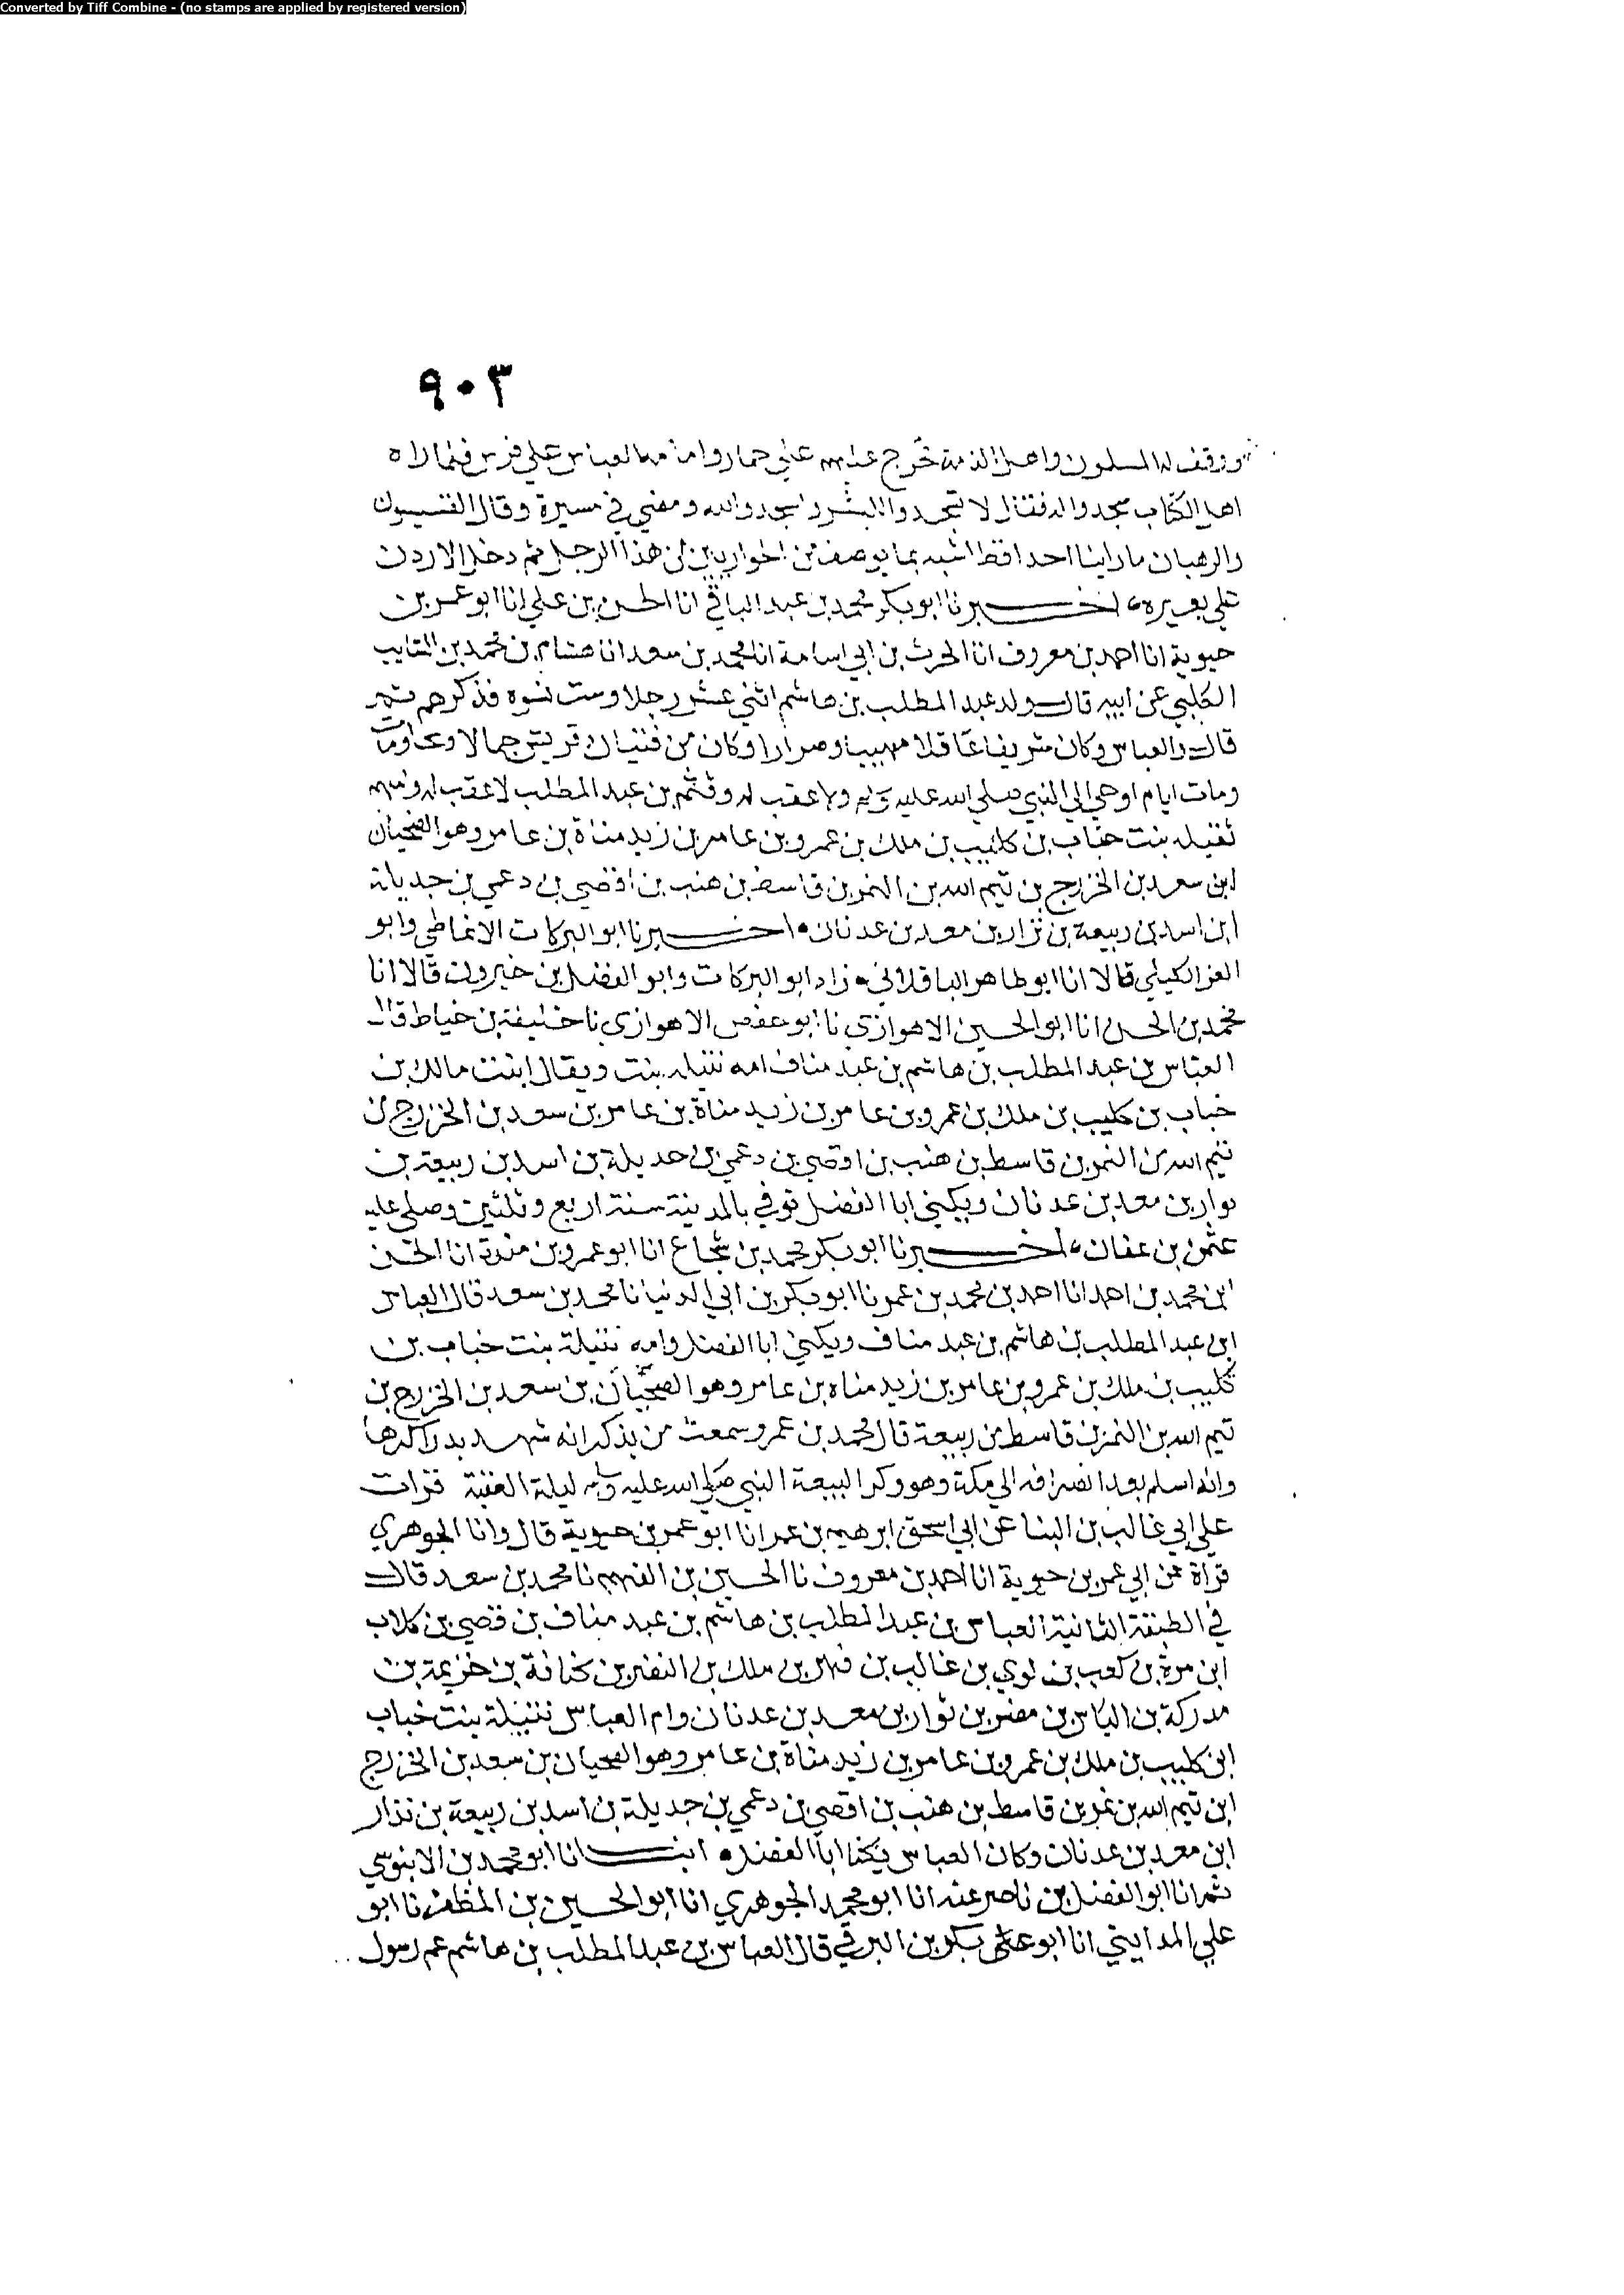 Converted by Tiff Combine - (no stamps are applied by registered version)
٩٠٣
ووقف له المسلمون واهل الذمة خرج عليهم علي حمار وامامه العباس علي فرس فلما راه
اهل الكتاب سجدوا له فقال لا تسجدوا للبشر واسجدوا لله ومضي في مسيرة وقال القسيسون
والرهبان ما راينا احدا قط اشبه بما يوصف من الحواريين من هذا الرجل ثم دخل الاردن
علي بعيره اخبرنا ابو بكر محمد بن عبد الباقي انا الحسن بن علي انا ابو عمر بن
حيوية انا احمد بن معروف انا الحرث بن ابي اسامة انا محمد بن سعد انا هشام بن محمد بن السايب
الكلبي عن ابيه قال ولد عبد المطلب بن هاشم اثني عشر رجلا وست نسوه فذكرهم ثم
قال والعباس وكان شريفا عاقلا مهيبا وضرارا وكان من فتيان قريش جمالا وسخا ومات
ومات ايام اوحي الي النبي صلي الله عليه ولا عقب له وقثم بن عبد المطلب لا عقب له وامهم
نتيله بنت جناب بن كليب بن ملك بن عمرو بن عامر بن زيد مناة بن عامر وهو الضحيان
ابن سعد بن الخزرج بن تيم الله بن النمر بن قاسط بن هنب بن افصي بن دعمي بن جديلة
ابن اسد بن ربيعة بن نزار بن معد بن عدنان اخبرنا ابو البركات الانماطي وابو
العز الكيلي قالا انا ابو طاهر الباقلاني زاد ابو البركات وابو الفضل بن خيرون قالا انا
محمد بن الحسن انا ابو الحسين الاهوازي نا ابو حفص الاهوازي نا خليفة بن خياط قال
العباس بن عبد المطلب بن هاشم بن عبد مناف امه نتيله بنت ويقال ابنت مالك بن
خباب بن كليب بن ملك بن عمرو بن عامر بن زيد مناة بن عامر بن سعد بن الخزرج بن
تيم الله بن النمر بن قاسط بن هنب بن افصي بن دعمي بن حديلة بن اسد بن ربيعة بن
نوار بن معد بن عدنان ويكني ابا الفضل توفي بالمدينة سنة اربع وثلثين وصلي عليه
عثمن بن عفان اخبرنا ابو بكر محمد بن شجاع انا ابو عمرو بن مندة انا الحسن
ابن محمد بن احمد انا احمد بن محمد بن عمر نا ابو بكر بن ابي الدنيا نا محمد بن سعد قال العباس
ابن عبد المطلب بن هاشم بن عبد مناف ويكني ابا الفضل وامه نتيلة بنت خباب بن
كليب بن ملك بن عمرو بن عامر بن زيد مناه بن عامر وهو الضحيان بن سعد بن الخزرج بن
تيم الله بن النمر بن قاسط من ربيعة قال محمد بن عمر وسمعت من يذكر انه شهد بدرا كرها
وانه اسلم بعد انصرافه الي مكة وهو وكر البيعة النبي صلي الله عليه ليلة العقبة قرات
علي ابي غالب بن البنا عن ابي اسحق ابرهيم بن عمر انا ابو عمر بن حيوية قال وانا الجوهري
قراة عن ابي عمر بن حيوية انا احمد بن معروف نا الحسين بن الفهم نا محمد بن سعد قال
في الطبقة الثانية العباس بن عبد المطلب بن هاشم بن عبد مناف بن قصي بن كلاب
ابن مرة بن كعب بن لوي بن غالب بن فهر بن ملك بن النضر بن كنانة بن خزيمة بن
مدركة بن الياس بن مضر بن نوار بن معد بن عدنان وام العباس نتيلة بنت خباب
ابن كليب بن ملك بن عمرو بن عامر بن زيد مناة بن عامر وهو الضحيان بن سعد بن الخزرج
ابن تيم الله بن نمر بن قاسط بن هنب بن افصي بن دعمي بن جديلة بن اسد بن ربيعة بن نذار
ابن معد بن عدنان وكان العباس يكنا ابا الفضل انبانا ابو محمد بن الابنوسي
ثم انا ابو الفضل بن ناصر عنه انا ابو محمد الجوهري انا ابو الحسين بن المظفر نا ابو
علي المدايني انا ابو بكر بن البرقي قال العباس بن عبد المطلب بن هاشم عم رسول